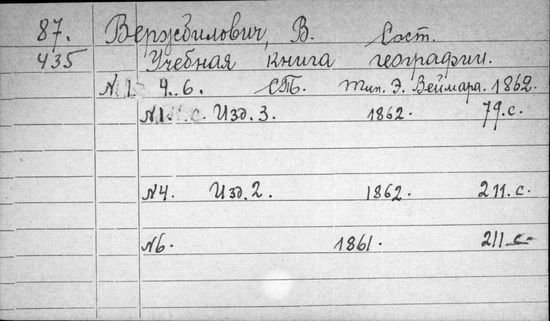 87. Вержбилович, В. Сост.
435 Учебная книга географии.
N1 4. 6. СПб. Тип. Э. Веймара. 1862.
N1 Изд. 3. 1862. 79. с.
N4. Изд. 2. 1862. 211. с.
N6. 1861. 211 с.